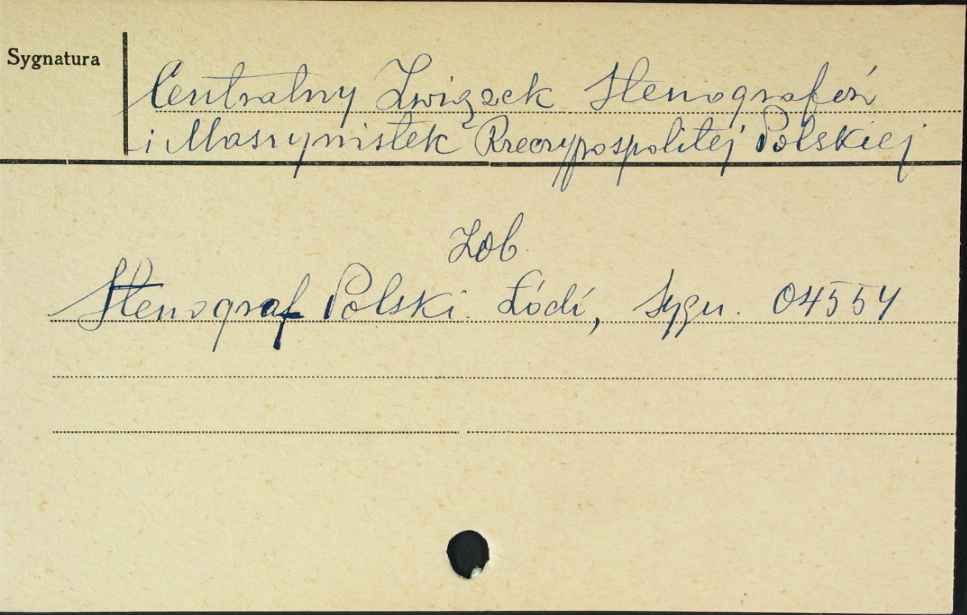 Sygnatura
Centralny Związek Stenografów
i Maszynistek Rzeczypospolitej Polskiej
Zob.
Stenograf Polski. Łódź, sygn. 04554